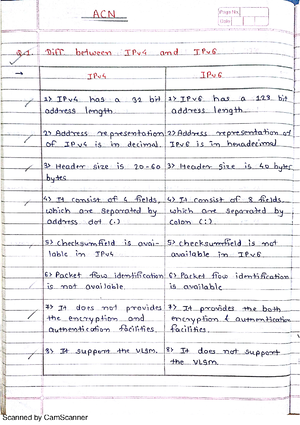 ACN
Page No.
Date
Q.1. Diff between IPv4 and IPv6
→ IPv4 IPv6
1) IPv4 has a 32 bit address length.
1) IPv6 has a 128 bit address length.
2) Address representation of IPv4 is in decimal.
2) Address representation of IPv6 is in hexadecimal.
3) Header size is 20-60 bytes
3) Header size is 40 bytes
4) It consist of 4 fields, which are separated by address dot (.)
4) It consist of 8 fields, which are separated by colon (:).
5) checksumfield is avai-lable in IPv4
5) checksumfield is not available in IPv6.
6) Packet flow identification is not available.
6) Packet flow identification is available
7) It does not provides the encryption and authentication facilities.
7) It provides the both encryption & authentication facilities.
8) It support the VLSM.
8) It does not support the VLSM
Scanned by CamScanner